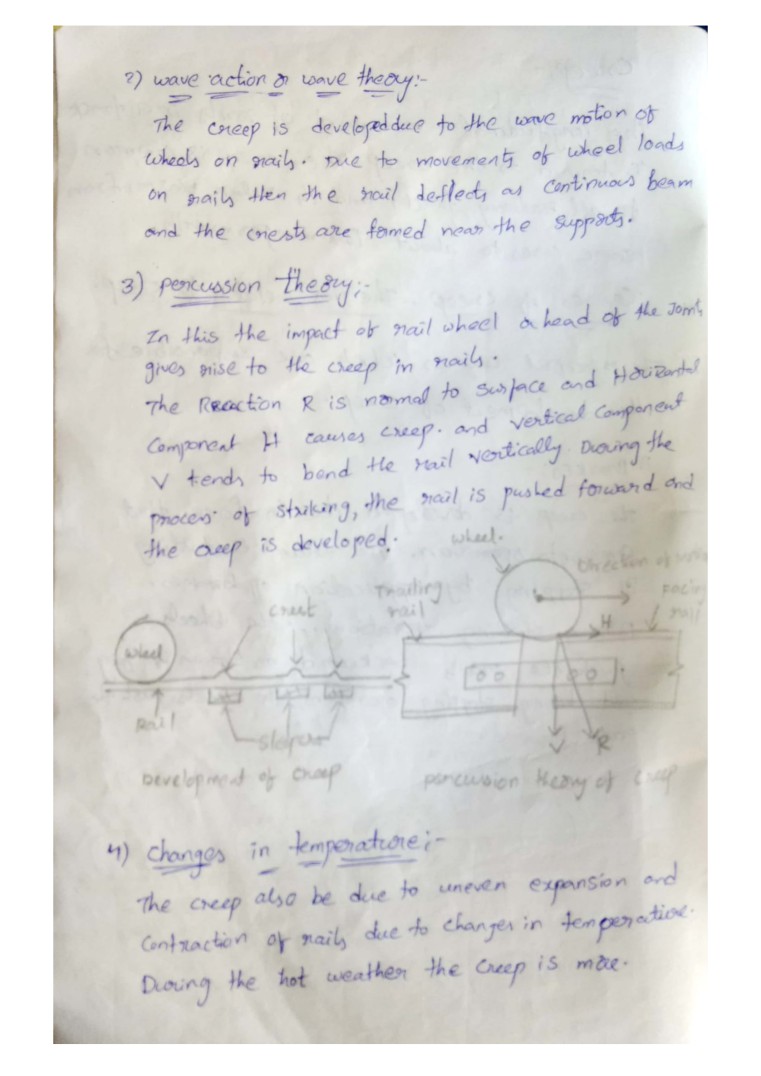 2) wave action or wave theory:-
The creep is developed due to the wave motion of
wheels on rails. Due to movements of wheel loads
on rails then the rail deflects as continuous beam
and the crests are formed near the supports.
3) percussion theory:-
In this the impact of rail wheel a head of the Joint
gives rise to the creep in rails.
The Reaction R is normal to surface and Horizontal
Component H causes creep. and vertical component
V tends to bend the rail vertically. During the
process of striking, the rail is pushed forward and
the creep is developed.
wheel.
Direction of
Trailing
rail
Facing
rail
crest
H
wheel
Rail
V
R
Development of creep
percussion theory of creep
4) changes in temperature:-
The creep also be due to uneven expansion and
Contraction of rails due to changes in temperature.
During the hot weather the creep is more.